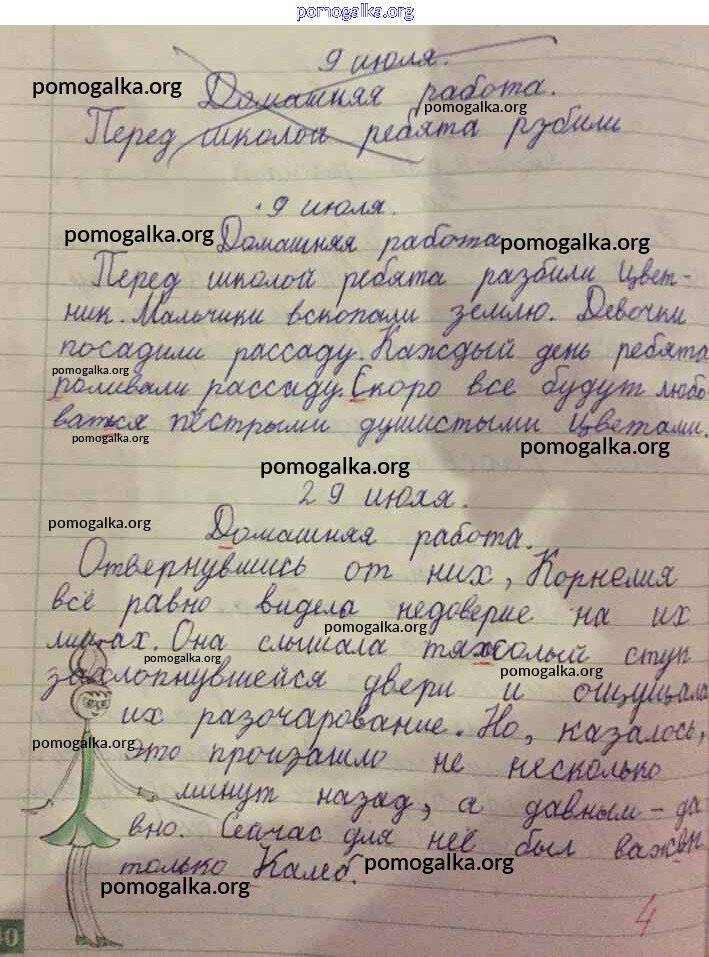 pomogalka.org
9 июля.
pomogalka.org
Домашняя работа.
pomogalka.org
Перед школой ребята рзбили
pomogalka.org
9 июля.
pomogalka.org Домашняя работа pomogalka.org
Перед школой ребята разбили цвет-
ник. Мальчики вскопали землю. Девочки
посадили рассаду. Каждый день ребята
pomogalka.org
поливали рассаду. Скоро все будут любо
ватся пёстрыми душистыми цветами.
pomogalka.org pomogalka.org
pomogalka.org
29 июля.
pomogalka.org
Домашняя работа.
Отвернувшись от них, Корнелия
всё равно видела недоверие на их
pomogalka.org
лицах. Она слышала тяжолый стук
pomogalka.org pomogalka.org
захлопнувшейся двери и ощущала
их разочарование. Но, казалось,
pomogalka.org
это произашло не несколько
минут назад, а давным-да
вно. Сейчас для неё был важен
только Калеб. pomogalka.org
pomogalka.org
4